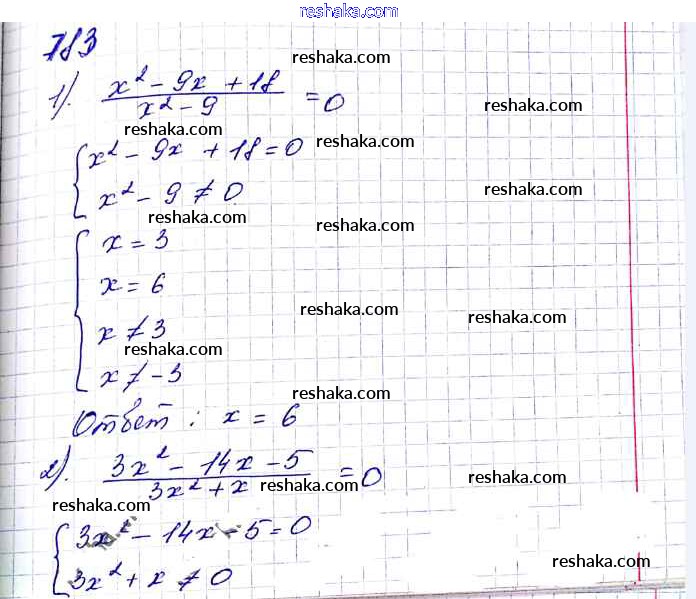 reshaka.com
783
reshaka.com
1). x² - 9x + 18 / x² - 9 = 0
reshaka.com
reshaka.com
reshaka.com
{ x² - 9x + 18 = 0
x² - 9 ≠ 0
reshaka.com
reshaka.com
reshaka.com
{ x = 3
x = 6
reshaka.com
reshaka.com
x ≠ 3
reshaka.com
x ≠ -3
reshaka.com
Ответ : x = 6
2). 3x² - 14x - 5 / 3x² + x = 0
reshaka.com
reshaka.com
reshaka.com
{ 3x² - 14x - 5 = 0
reshaka.com
3x² + x ≠ 0